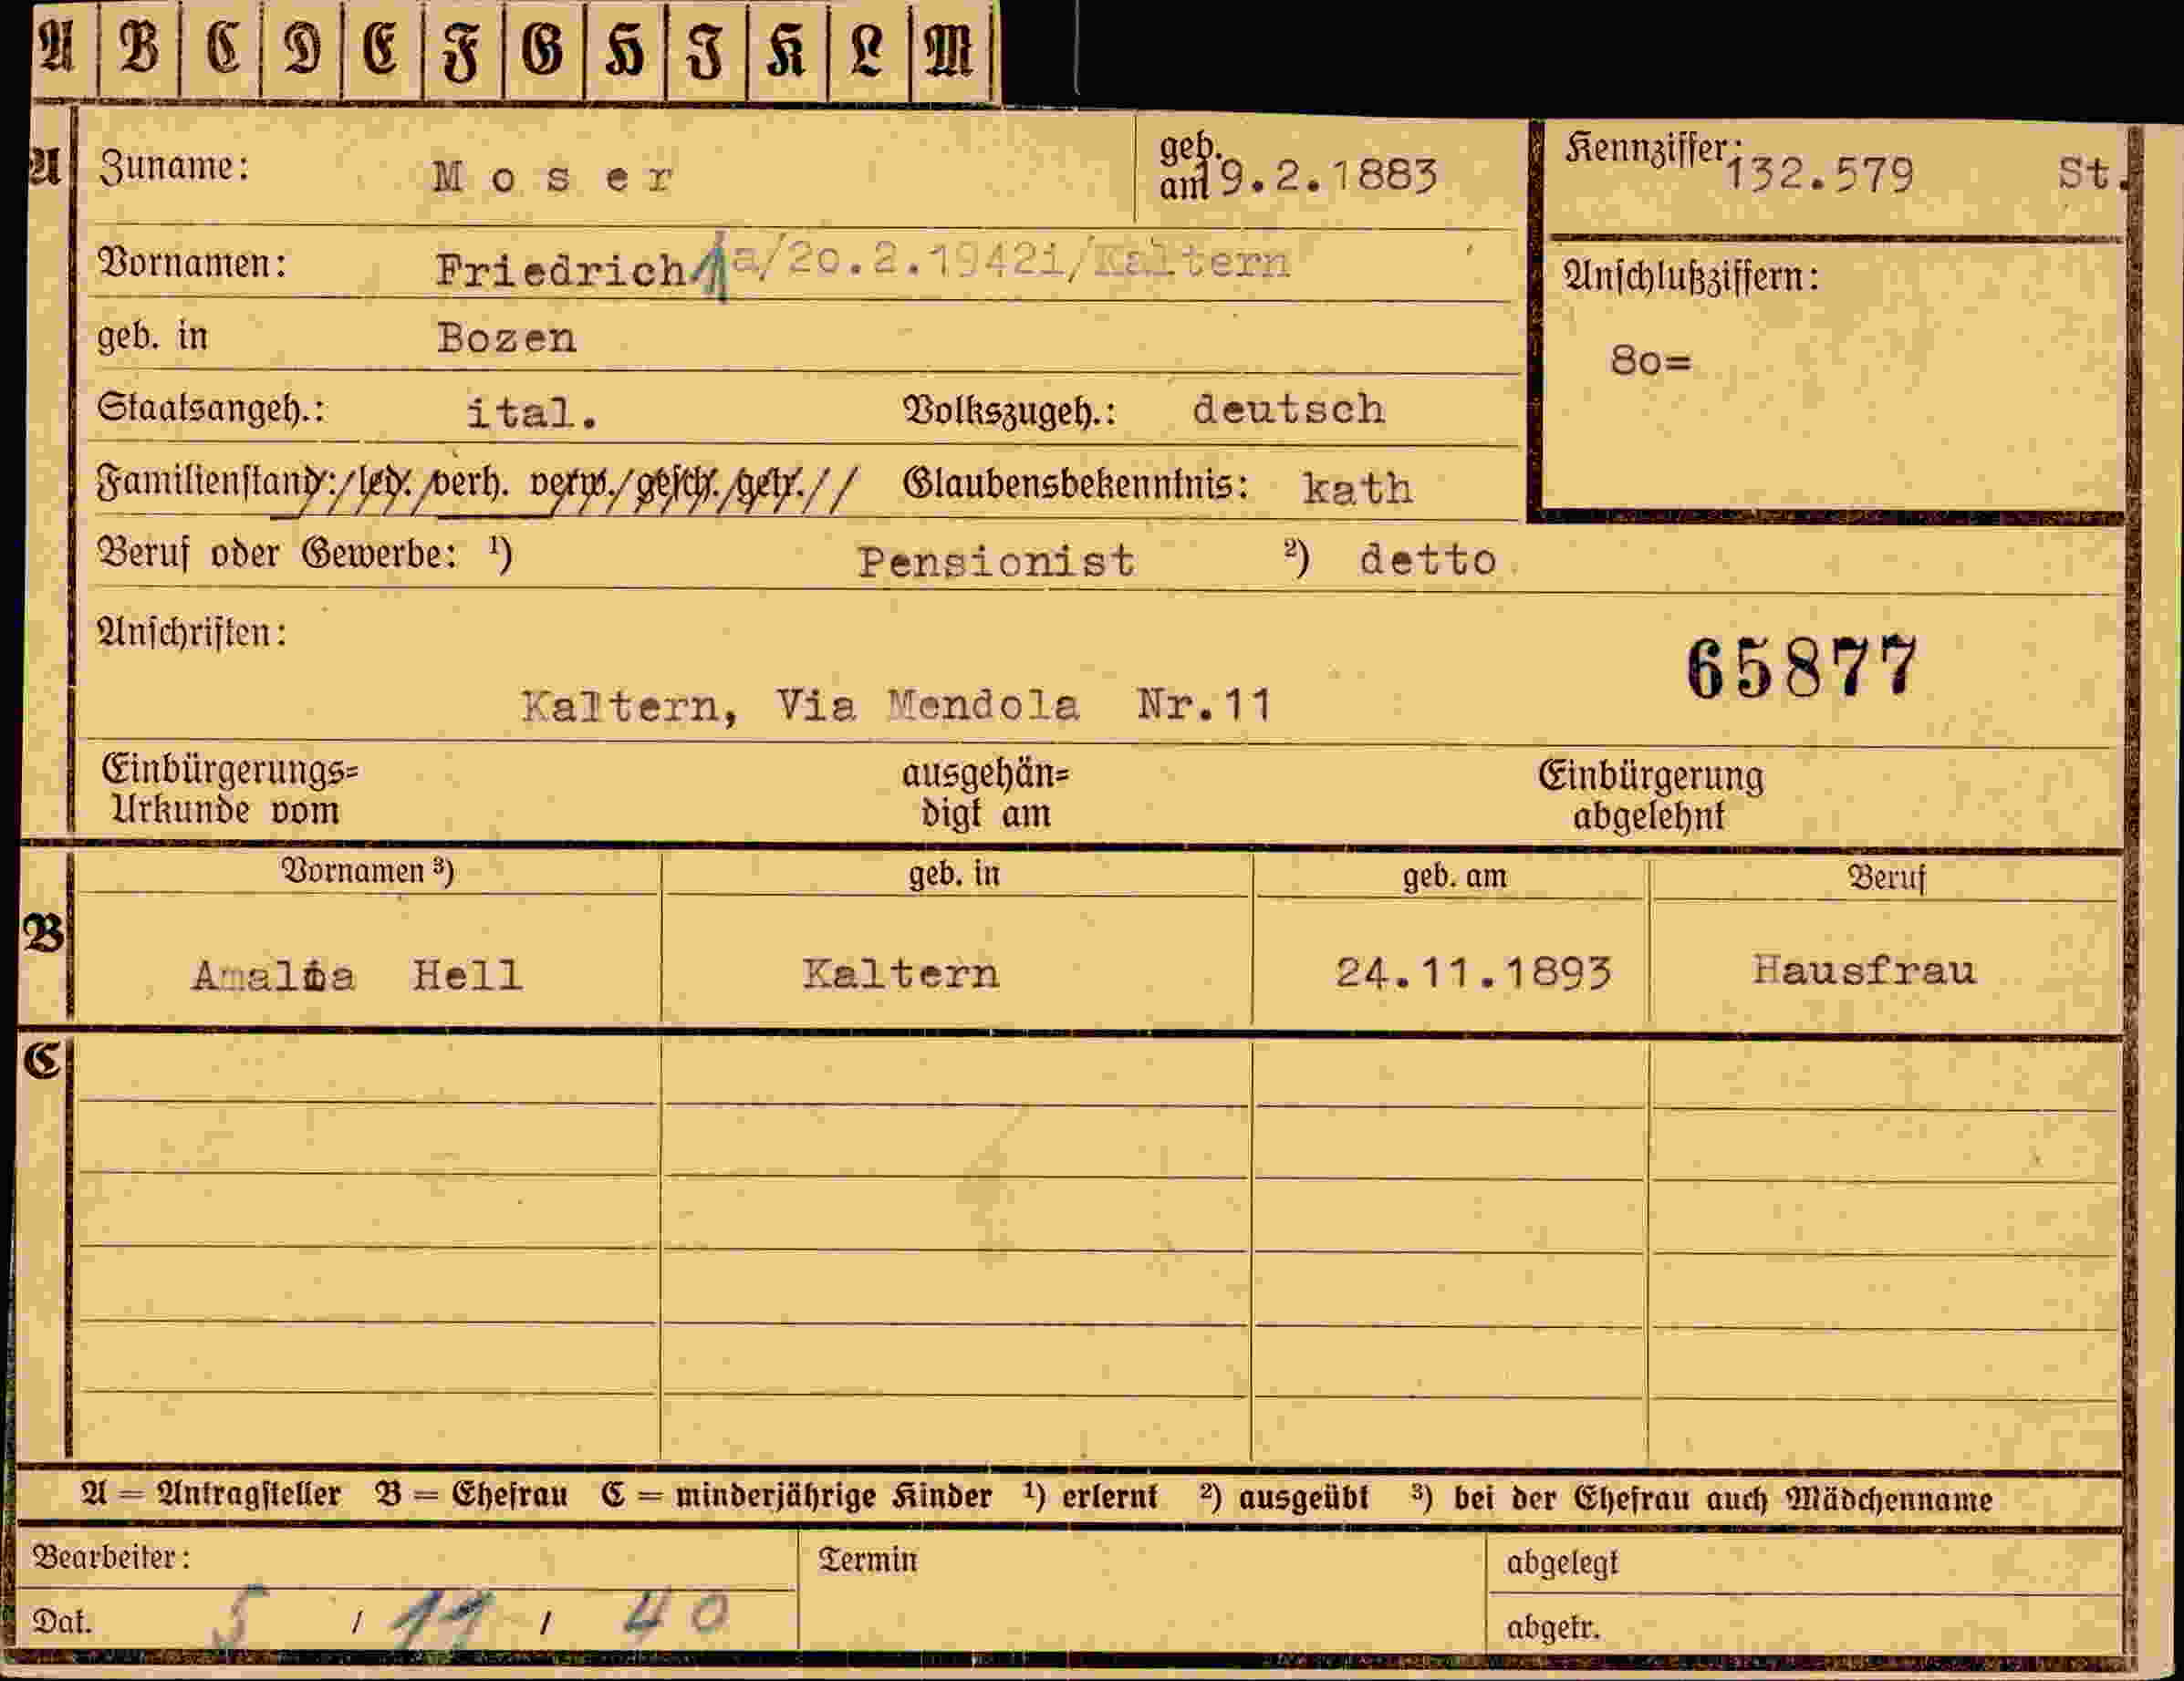 A B C D E F G H I K L M
A Zuname: Moser geb. am 19.2.1883 Kennziffer: 132.579 St.
Vornamen: Friedrich a/20.2.1942i/Kaltern Anschlußziffern:
geb. in Bozen 80=
Staatsangeh.: ital. Volkszugeh.: deutsch
Familienstand: led. verh. verw. gesch. getr. Glaubensbekenntnis: kath
Beruf oder Gewerbe: ¹) Pensionist ²) detto
Anschriften: 65877
Kaltern, Via Mendola Nr.11
Einbürgerungs= ausgehän= Einbürgerung
Urkunde vom digt am abgelehnt
Vornamen ³) geb. in geb. am Beruf
B Amalia Hell Kaltern 24.11.1893 Hausfrau
C
A = Antragsteller B = Ehefrau C = minderjährige Kinder ¹) erlernt ²) ausgeübt ³) bei der Ehefrau auch Mädchenname
Bearbeiter: Termin abgelegt
Dat. 5 / 11 / 40 abgetr.